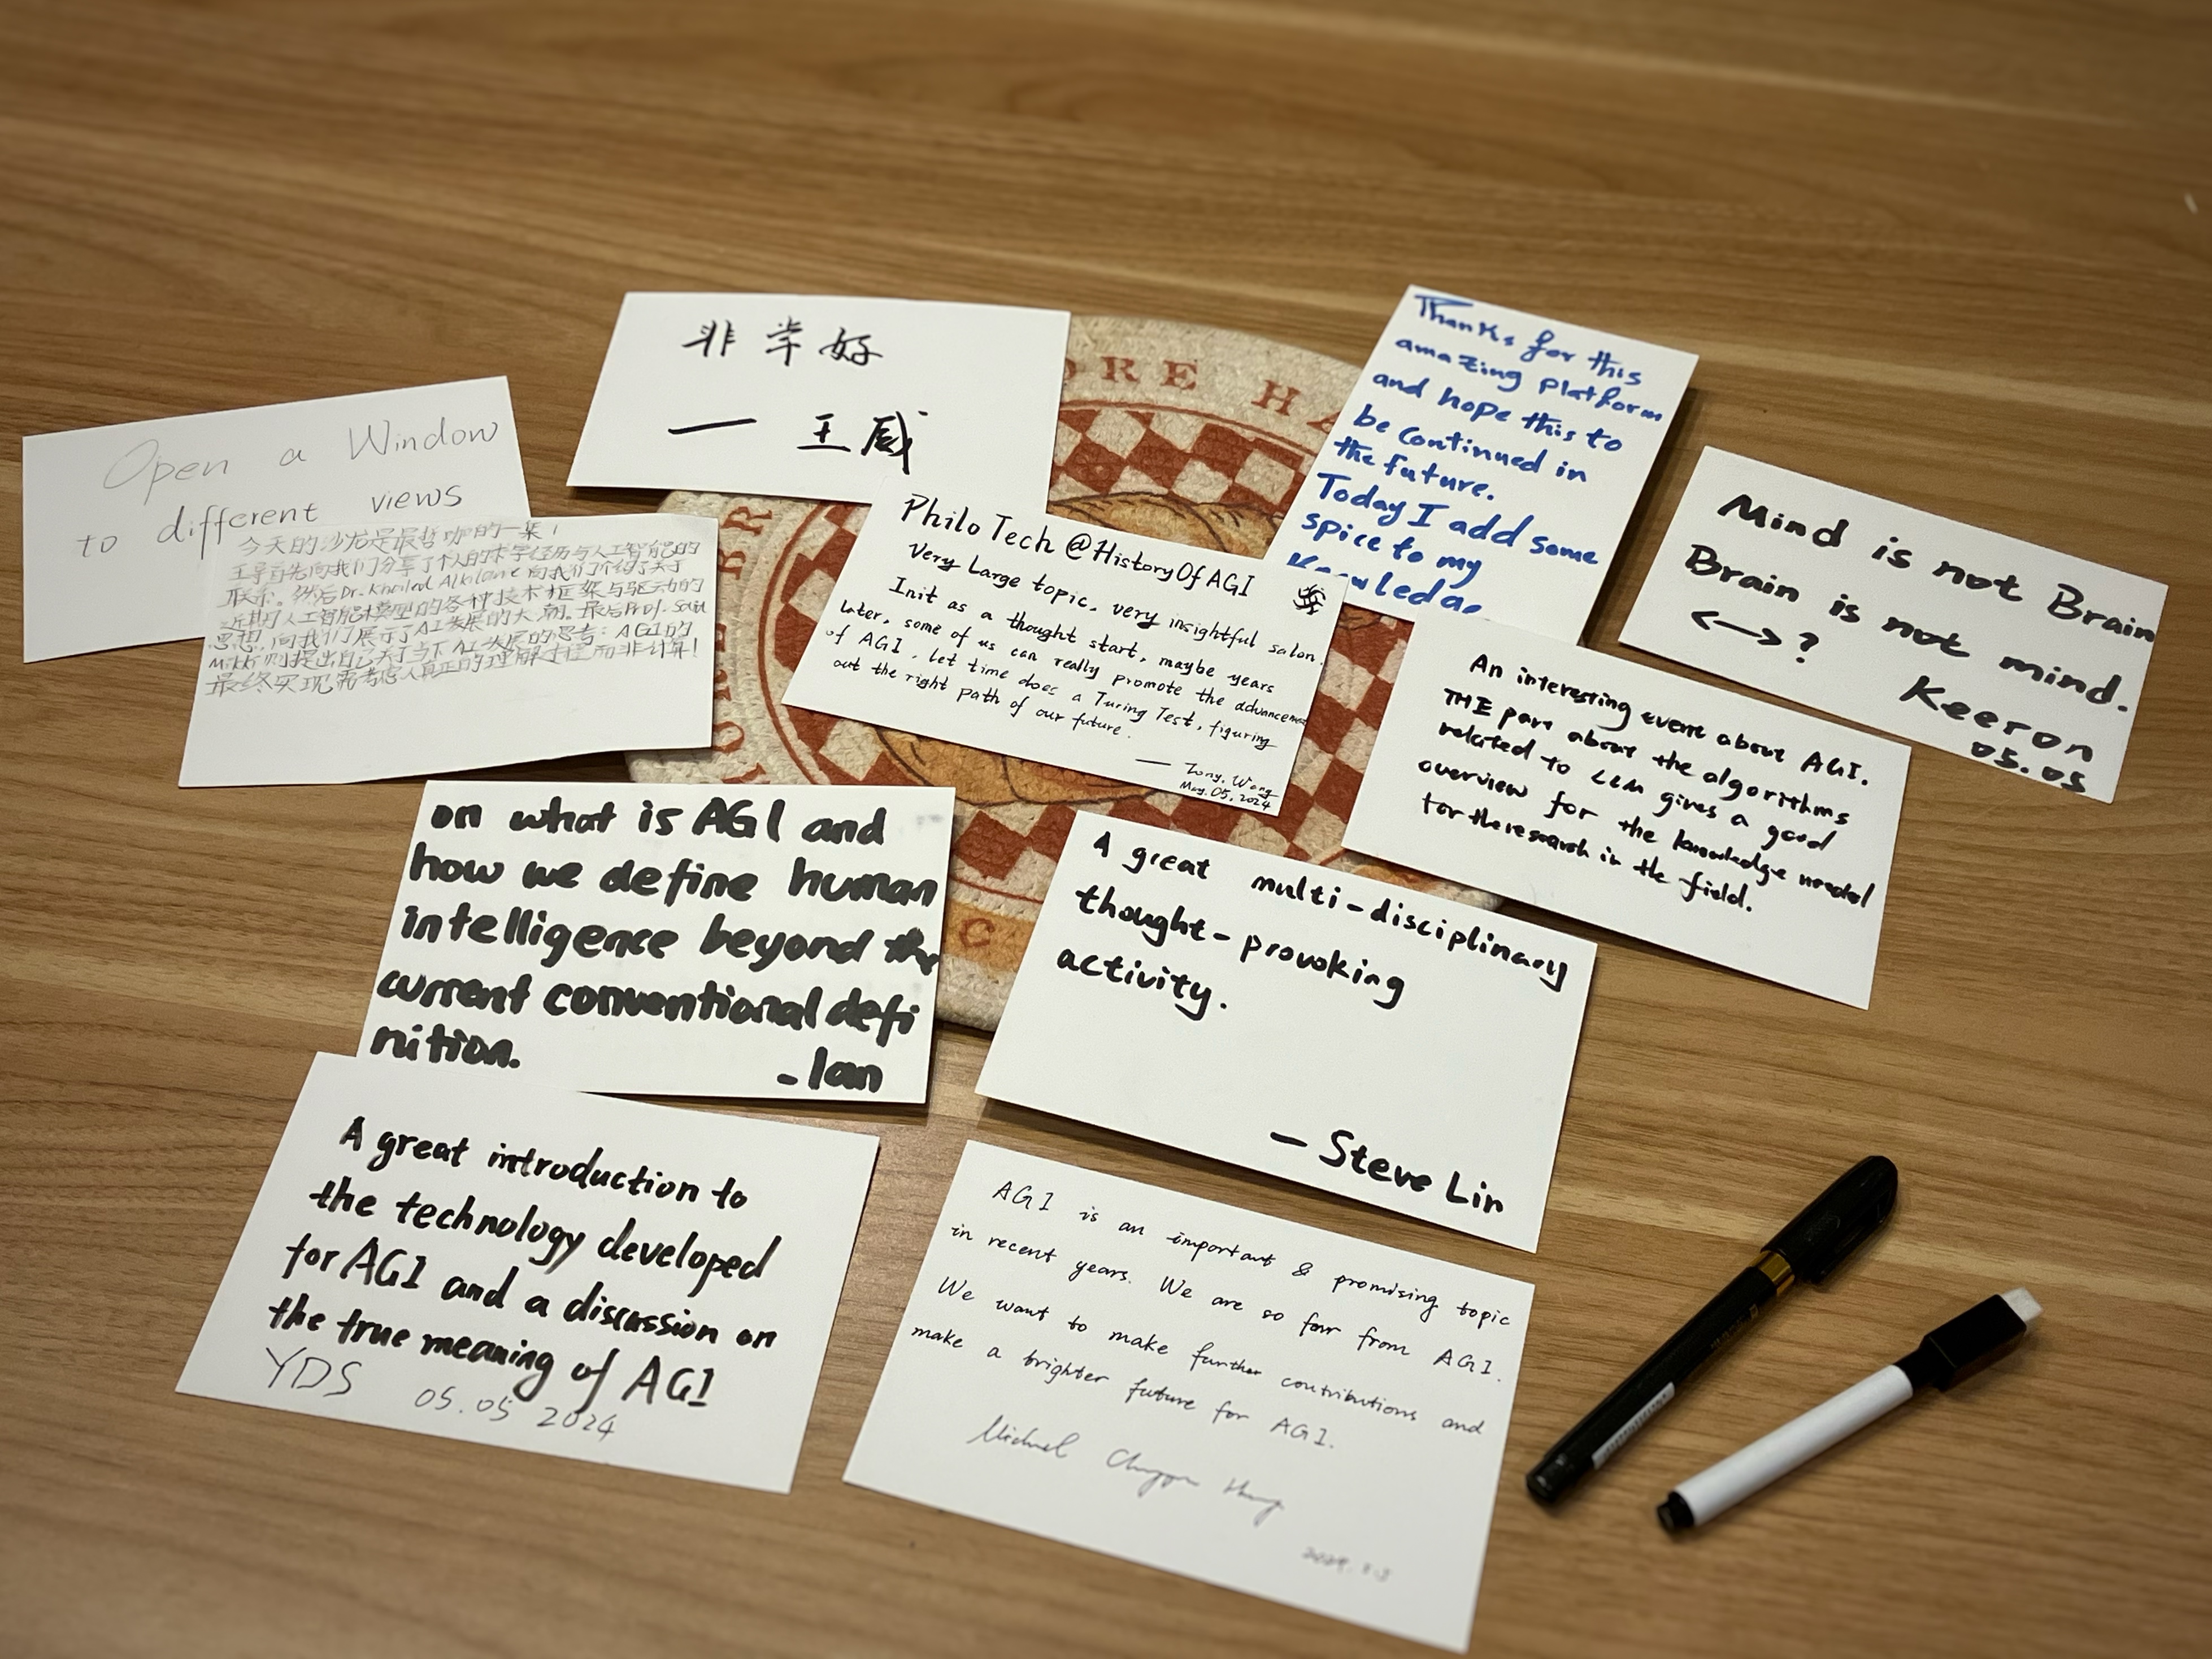 非常好
— 王威
Thanks for this
amazing Platform
and hope this to
be continued in
the future.
Today I add some
spice to my
Open a Window
to different views
Mind is not Brain
Brain is not mind.
<—>?
Keeron
05.05
今天的沙龙是最哲咖的一集!
王导首先向我们分享了个人的求学经历与人工智能的
联系。然后Dr. Khaled 向我们介绍了关于
近期的人工智能模型的各种技术框架与驱动的
思想,向我们展示了AI发展的大潮。最后Prof.
则提出自己关于当下AI发展的思考:AGI的
最终实现需考虑人真正的理解过程而非计算!
Philo Tech @HistoryOfAGI
Very Large topic, very insightful salon.
Init as a thought start, maybe years
later, some of us can really promote the advancement
of AGI. let time does a Turing Test, figuring
out the right path of our future.
— Tony. Wang
May. 05, 2024
An interesting event about AGI.
THE part about the algorithms
related to LLM gives a good
overview for the knowledge needed
for the research in the field.
on what is AGI and
how we define human
intelligence beyond the
current conventional defi
nition.
- Ian
A great multi-disciplinary
thought-provoking
activity.
— Steve Lin
A great introduction to
the technology developed
for AGI and a discussion on
the true meaning of AGI
YDS 05.05 2024
AGI is an important & promising topic
in recent years. We are so far from AGI.
We want to make further contributions and
make a brighter future for AGI.
Michael